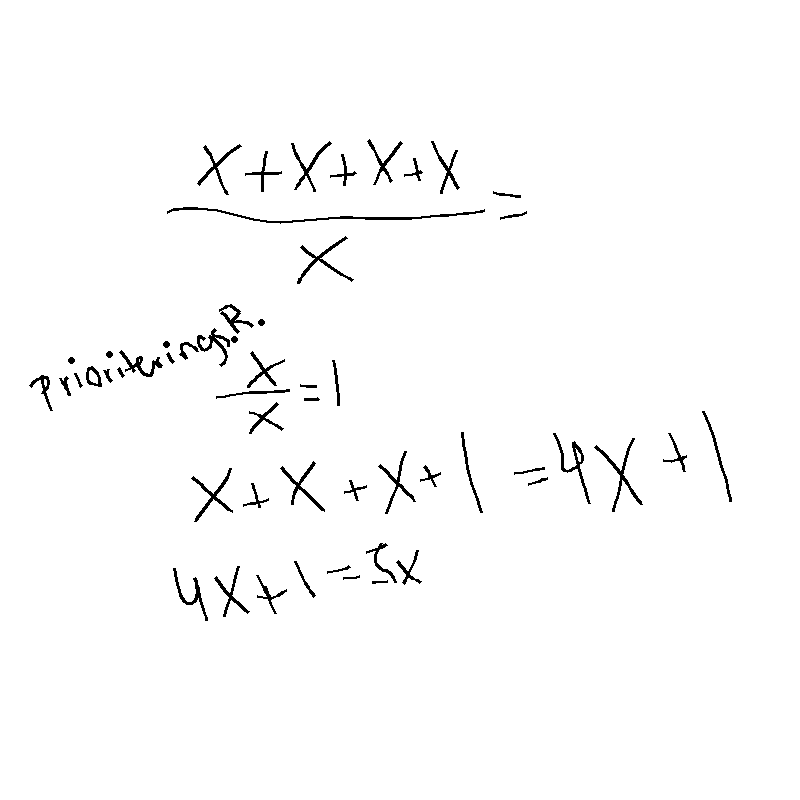 x+x+x+x =
x
Prioriterings.R.
x/x = 1
x+x+x+1 = 4x+1
4x+1 = 5x